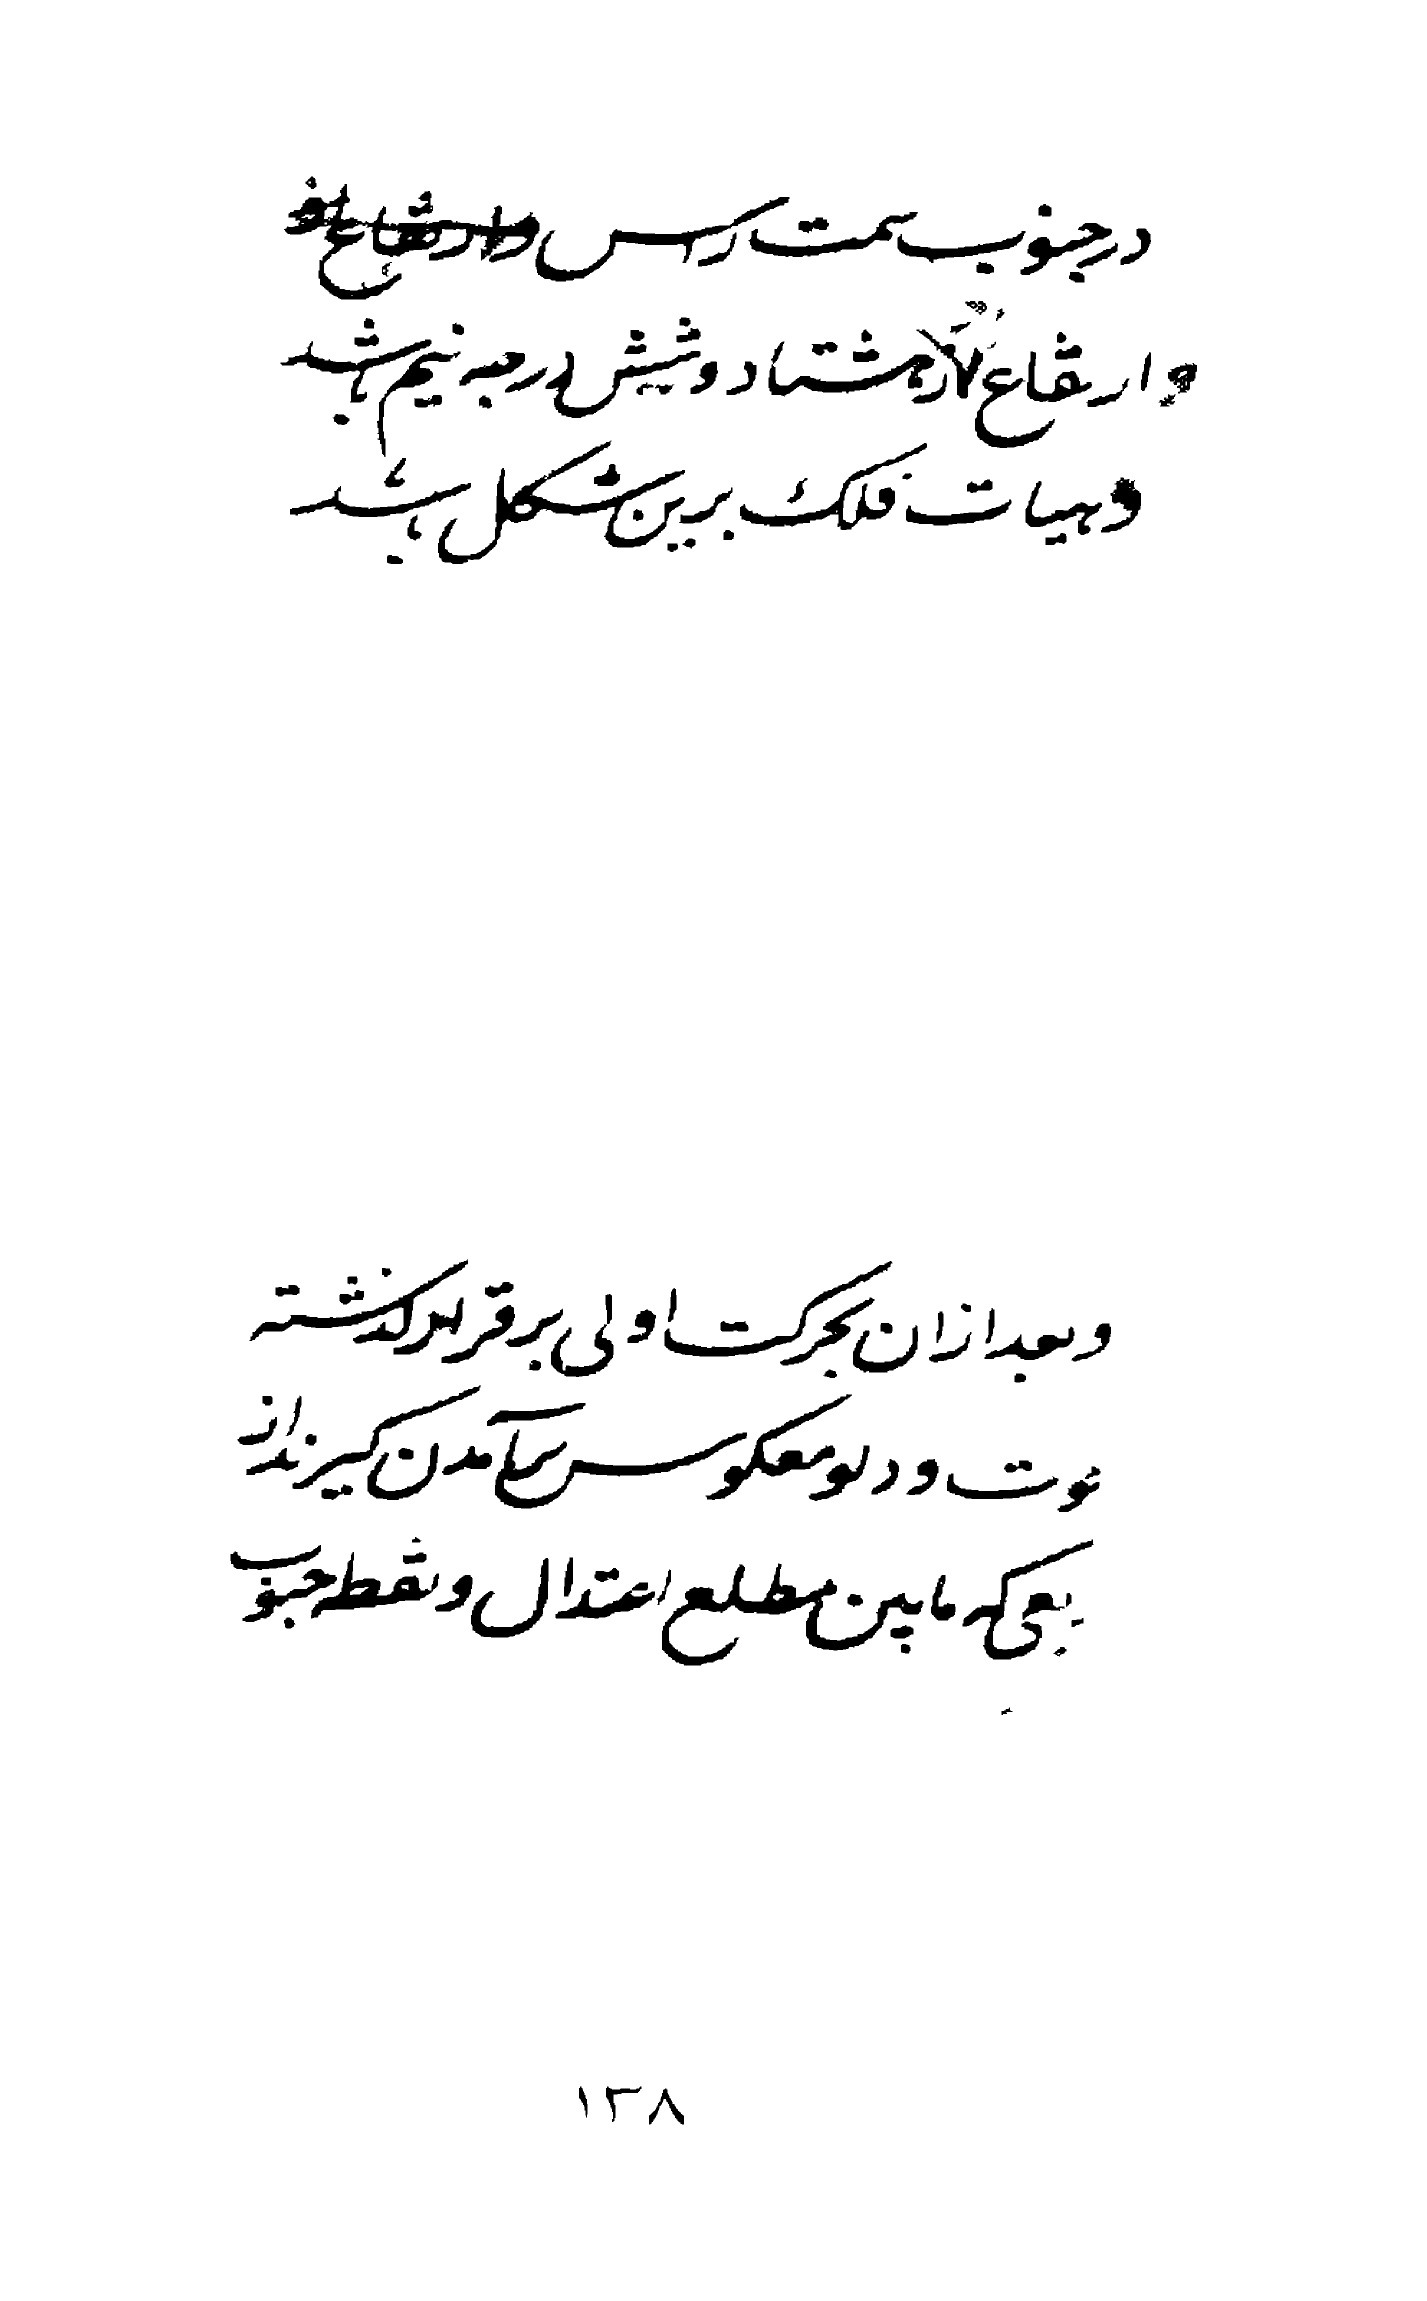 در جنوب سمت راس وارتفاع او
وارتفاع هشتاد و شش درجه نیم باشد
و هیات فلک برین شکل باشد
وبعد ازان بحرکت اولی برقرار گذشته
ثوت ودلو معکوس برآمدن کیرند از
بعی که مابین مطلع اعتدال ونقطه جنوب
۱۳۸